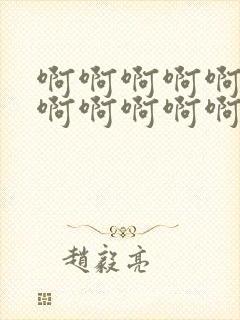 啊啊啊啊啊
啊啊啊啊啊
趙毅亮